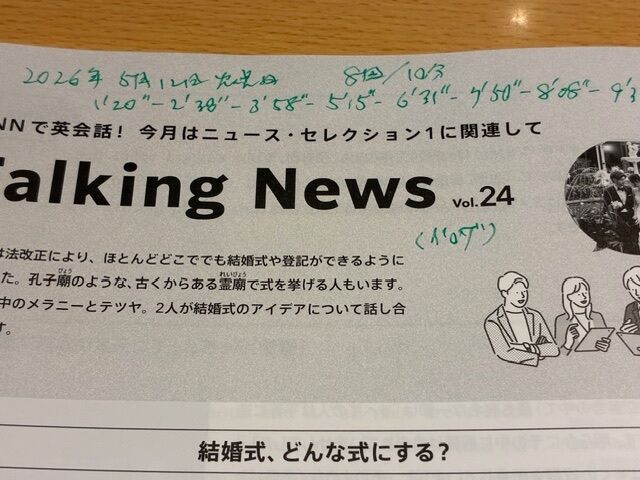 2026年 5月12日 火曜日 8回/10分
1'20"-2'38"-3'58"-5'15"-6'31"-7'50"-8'08"-9'3
NNで英会話！ 今月はニュース・セレクション1に関連して
Talking News Vol.24
は法改正により、ほとんどどこででも結婚式や登記ができるように
た。孔子廟のような、古くからある霊廟で式を挙げる人もいます。
中のメラニーとテツヤ。2人が結婚式のアイデアについて話し合
す。
結婚式、どんな式にする？